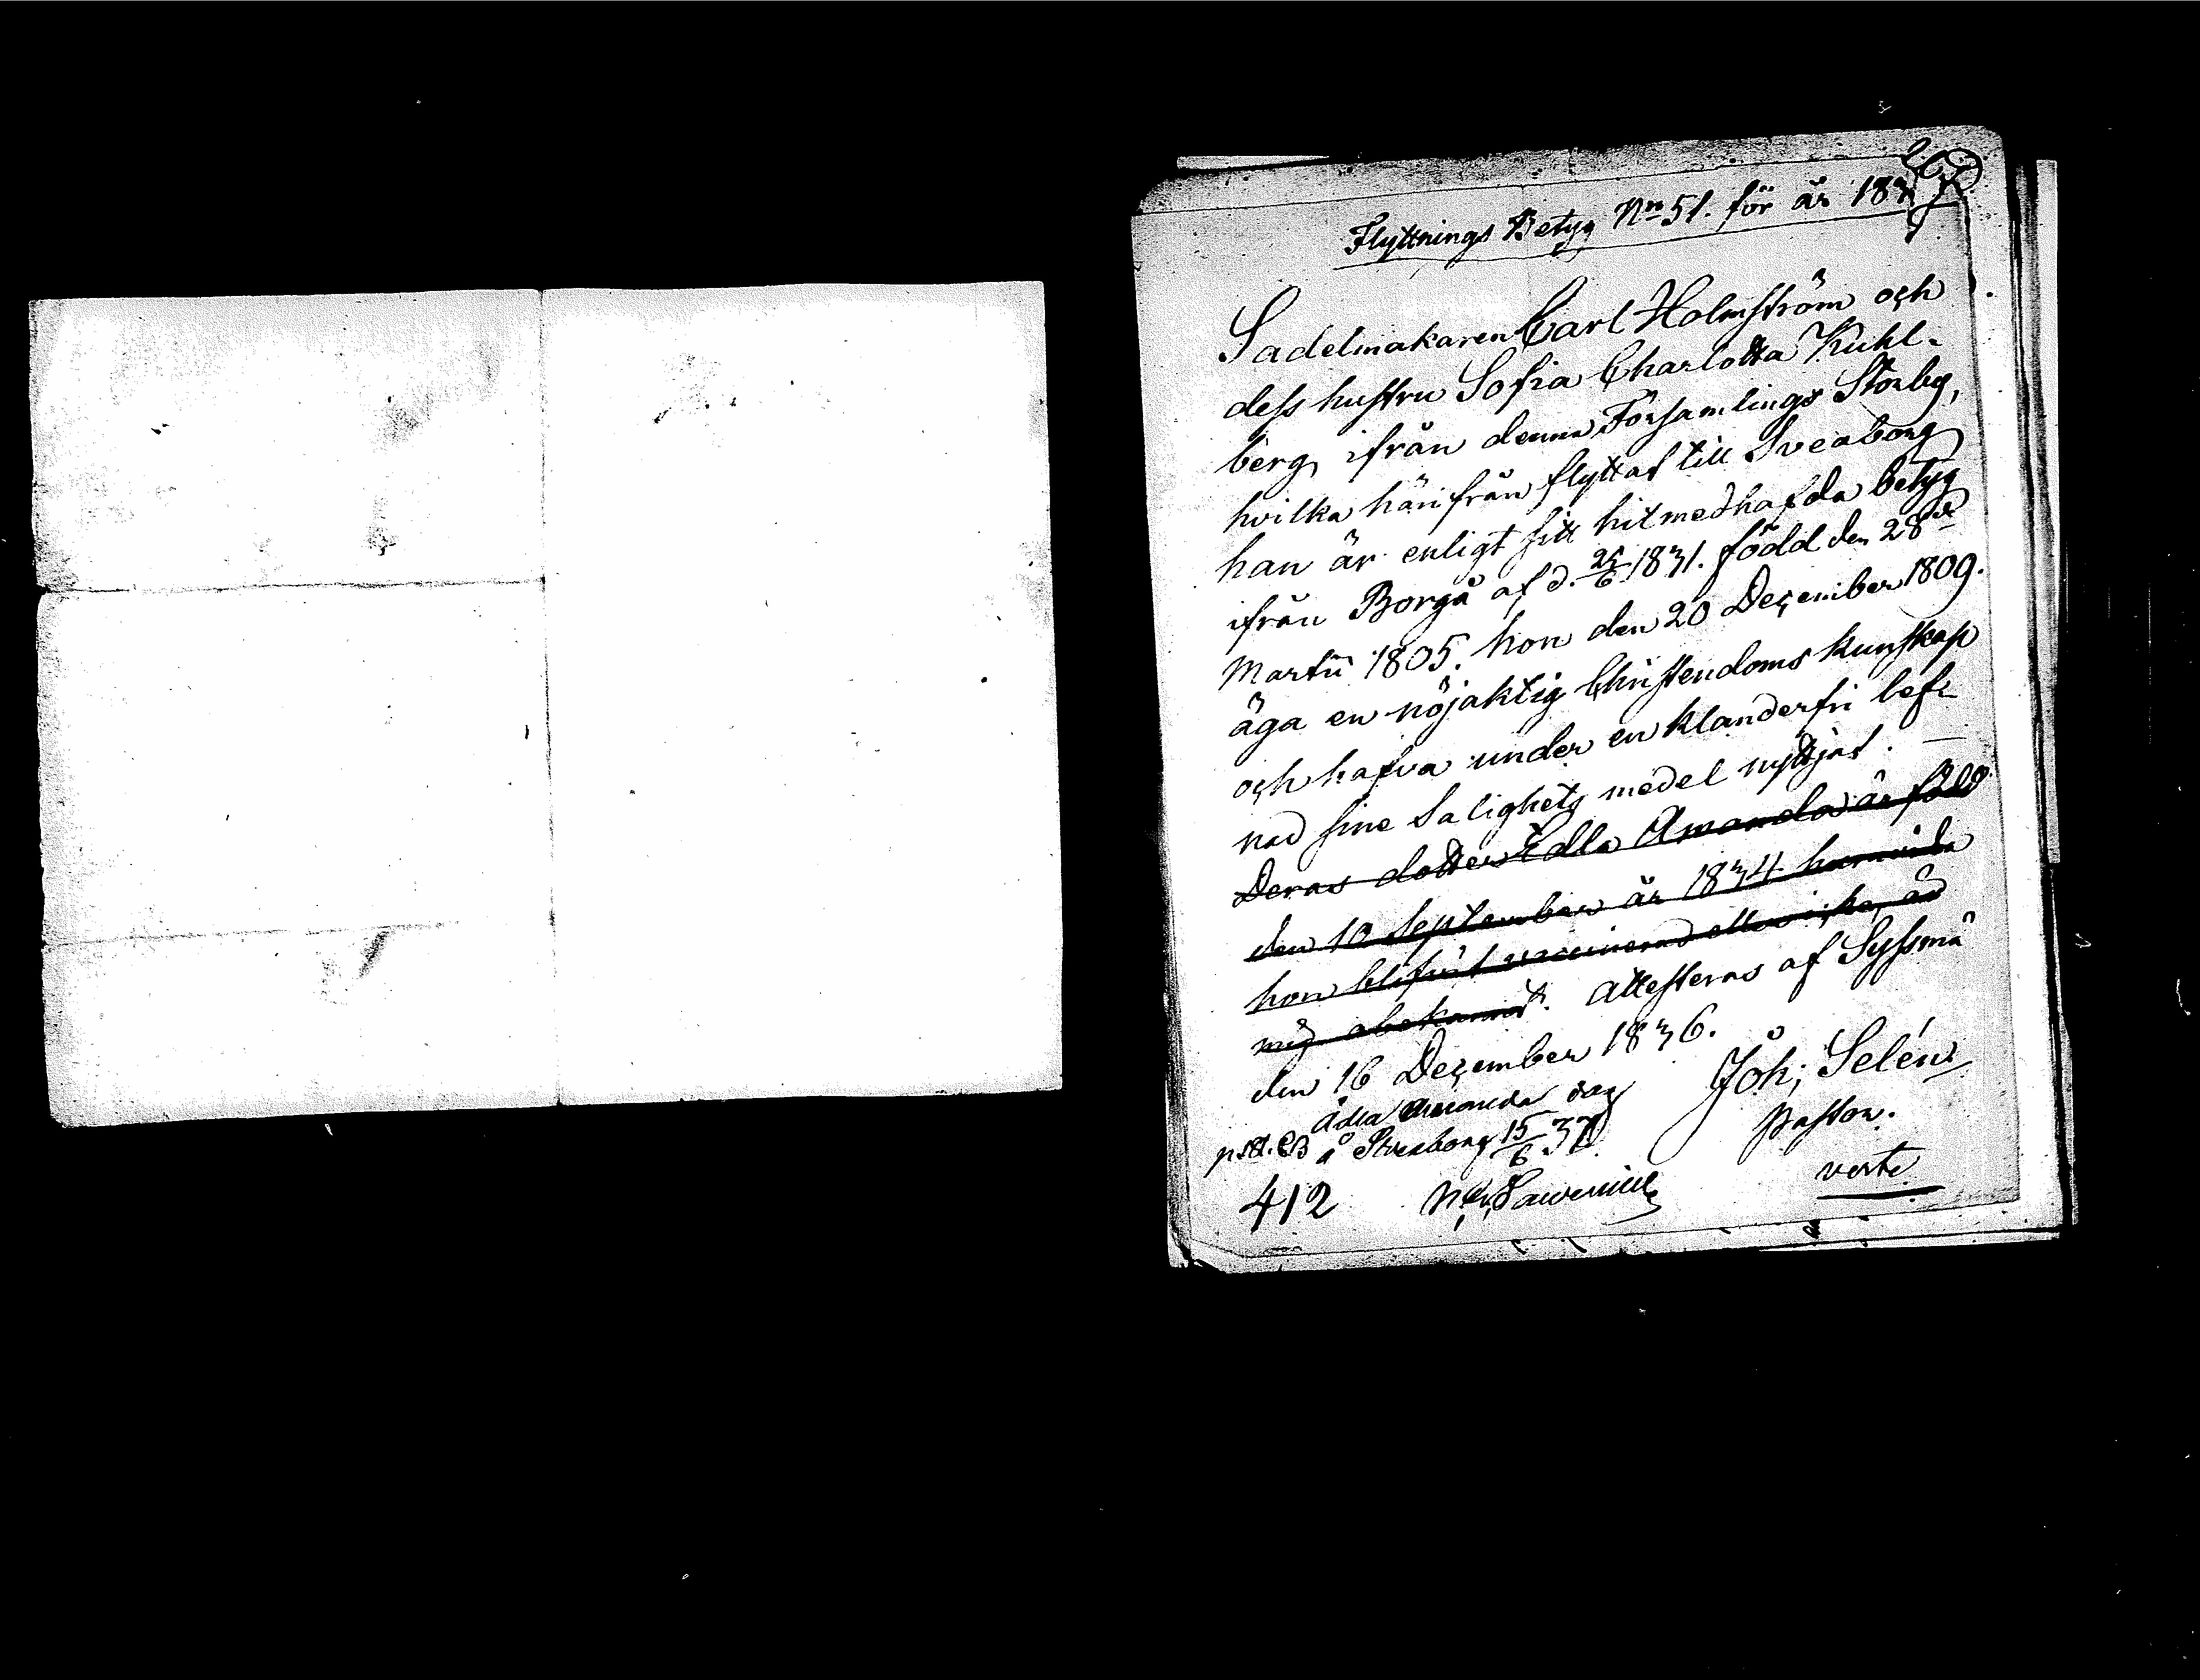 Flyttnings Betyg No 51. för år 183
Sadelmakaren Carl Holmström och
dess hustru Sofia Charlotta Kuhl-
berg, ifrån denna Församlings Storby,
hvilka härifrån flyttat till Sveaborg
han är enligt sitt hitmedhafda betyg
ifrån Borgå af d. 25/6 1831. född den 28de
Martii 1805. hon den 20 December 1809.
äga en nöjaktig Christendoms kunskap
och hafva under en klanderfri lef-
nad sine Salighets medel nyttjat. —
Deras dotter Edla Amanda är född
den 10 September år 1834 huruvida
hon blifvit vaccinerad eller icke, är
mig obekannt. Attesteras af Syssmä
den 16 December 1836.
Joh; Selén
pastor.
Adla Amanda
å Sveaborg 15/6 37
verte
412